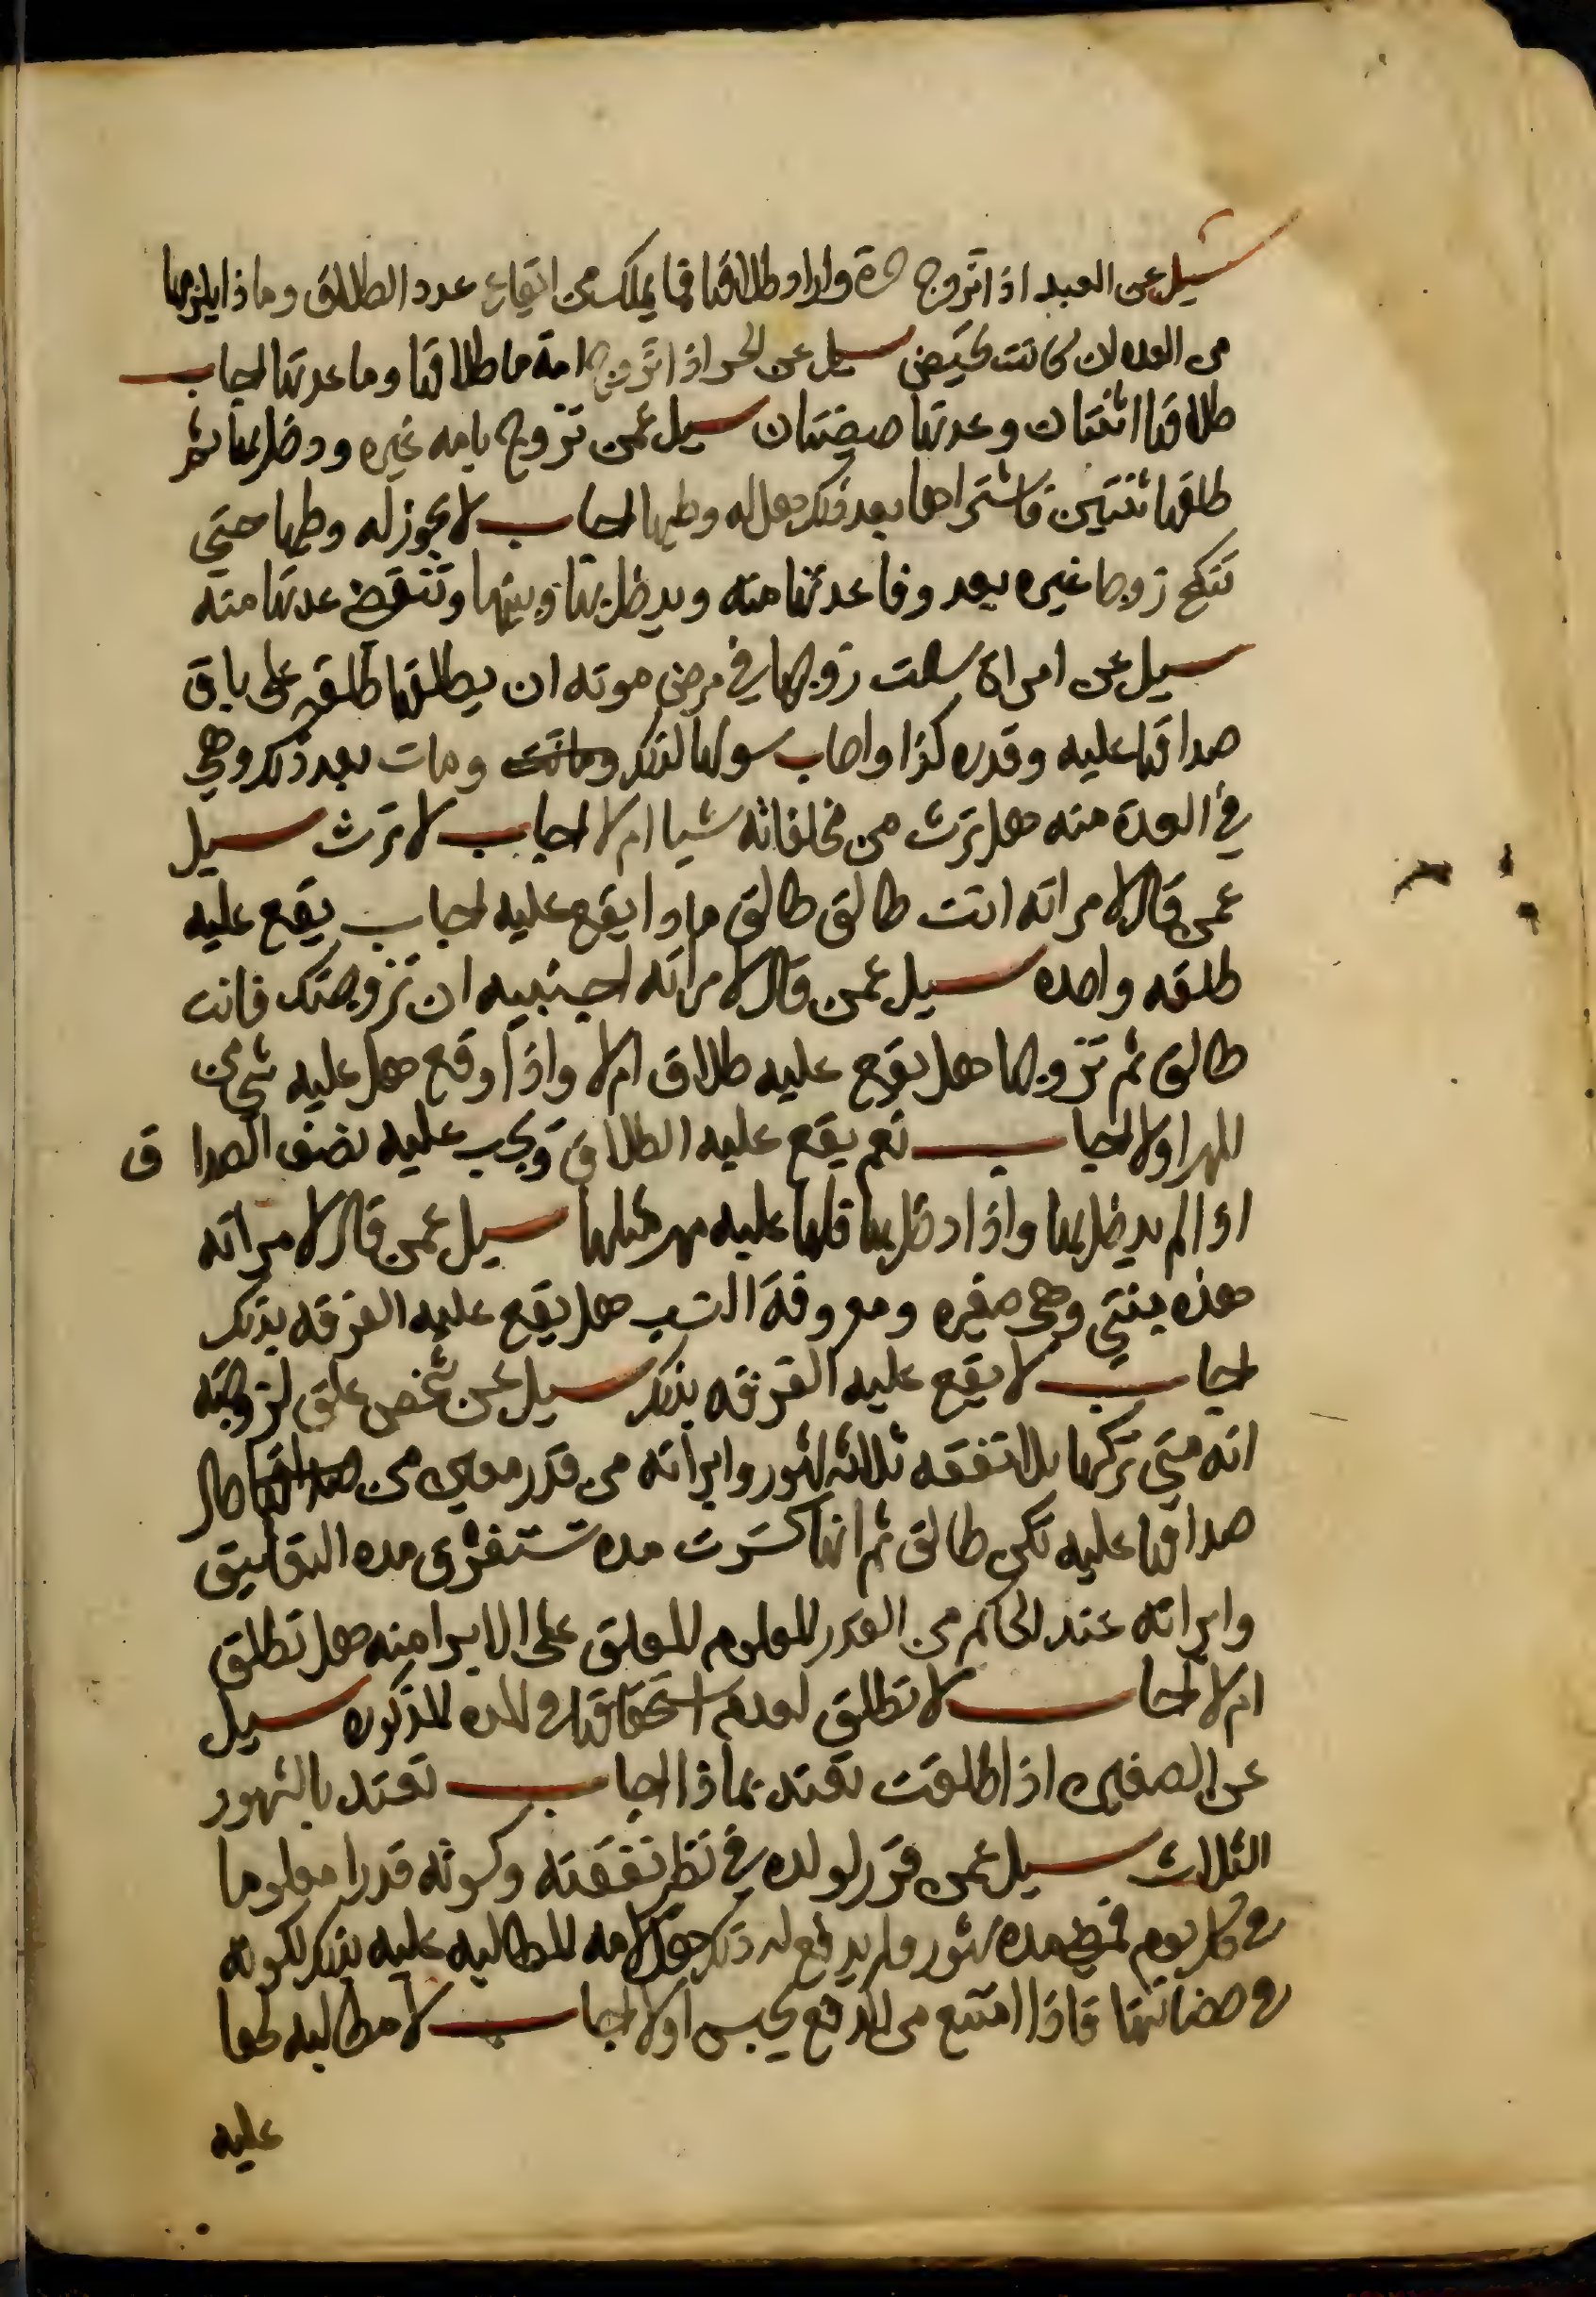 سيل عن العبد اذا تزوج حرة واراد طلاقها فما يملك من ايقاع عدد الطلاق وماذا يلزمها
من العده ان كانت تحيض سيل عن الحر اذا تزوج امة ما طلاقها وما عدتها اجاب
طلاقها اثنتان وعدتها حيضتان سيل عمن تزوج بامه غيره ودخل بها ثم
طلقها ثنتين فاشتراها بعد ذلك هل له وطيها اجاب لا يجوز له وطيها حتى
تنكح زوجا غيره بعد وفا عدتها منه ويدخل بها ويبينها وتنقض عدتها منه
سيل عن امراة سالت زوجها في مرض موته ان يطلقها طلقه على باقي
صداقها عليه وقدره كذا واجاب سولها لذلك وماتت ومات بعد ذلك وهي
في العدة منه هل ترث من مخلفاته شيا ام لا اجاب لا ترث سيل
عمن قال لامراته انت طالق طالق ماذا يقع عليه اجاب يقع عليه
طلقه واحده سيل عمن قال لامراته اجنبيه ان تزوجتك فانت
طالق ثم تزوجها هل يقع عليه طلاق ام لا واذا وقع هل عليه شي من
المهر اولا اجاب نعم يقع عليه الطلاق ويجب عليه نصف الصداق
اذا لم يدخل بها واذا دخل بها فلها عليه مهر مثلها سيل عمن قال لامراته
هذه بنتي وهي صغيره ومعروفة النسب هل يقع عليه الفرقه بذلك
اجاب لا يقع عليه الفرقه بذلك سيل عن شخص علق لزوجته
انه متى تركها بلا نفقه ثلاثه اشهر وابراته من قدر معين من صداقها حال
صداقها عليه تكن طالق ثم انها كسرت مده تستغرق مده التعليق
وابراته عند الحاكم من القدر المعلوم المعلق على الابرا منه هل تطلق
ام لا اجاب لا تطلق لعدم استحقاقها في المده المذكوره سيل
عن الصغيره اذا طلقت تعتد بماذا اجاب تعتد بالشهور
الثلاث سيل عمن قرر لولده في نظر نفقته وكسوته قدرا معلوما
في كل يوم فمضى مده شهور ولم يدفع له ذلك فهل لامه المطالبه عليه بذلك لكونه
في حضانتها فاذا امتنع من الدفع يحبس اولا اجاب لا مطالبه لها
عليه